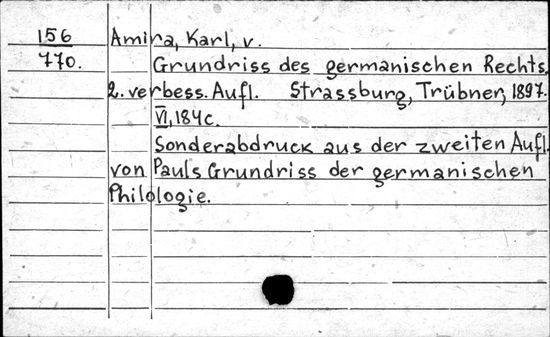 156 Amira, Karl, v.
770. Grundriss des germanischen Rechts.
2. verbess. Aufl. Strassburg, Trübner, 1897.
VI, 184c.
Sonderabdruck aus der zweiten Aufl.
von Pauls Grundriss der germanischen
Philologie.